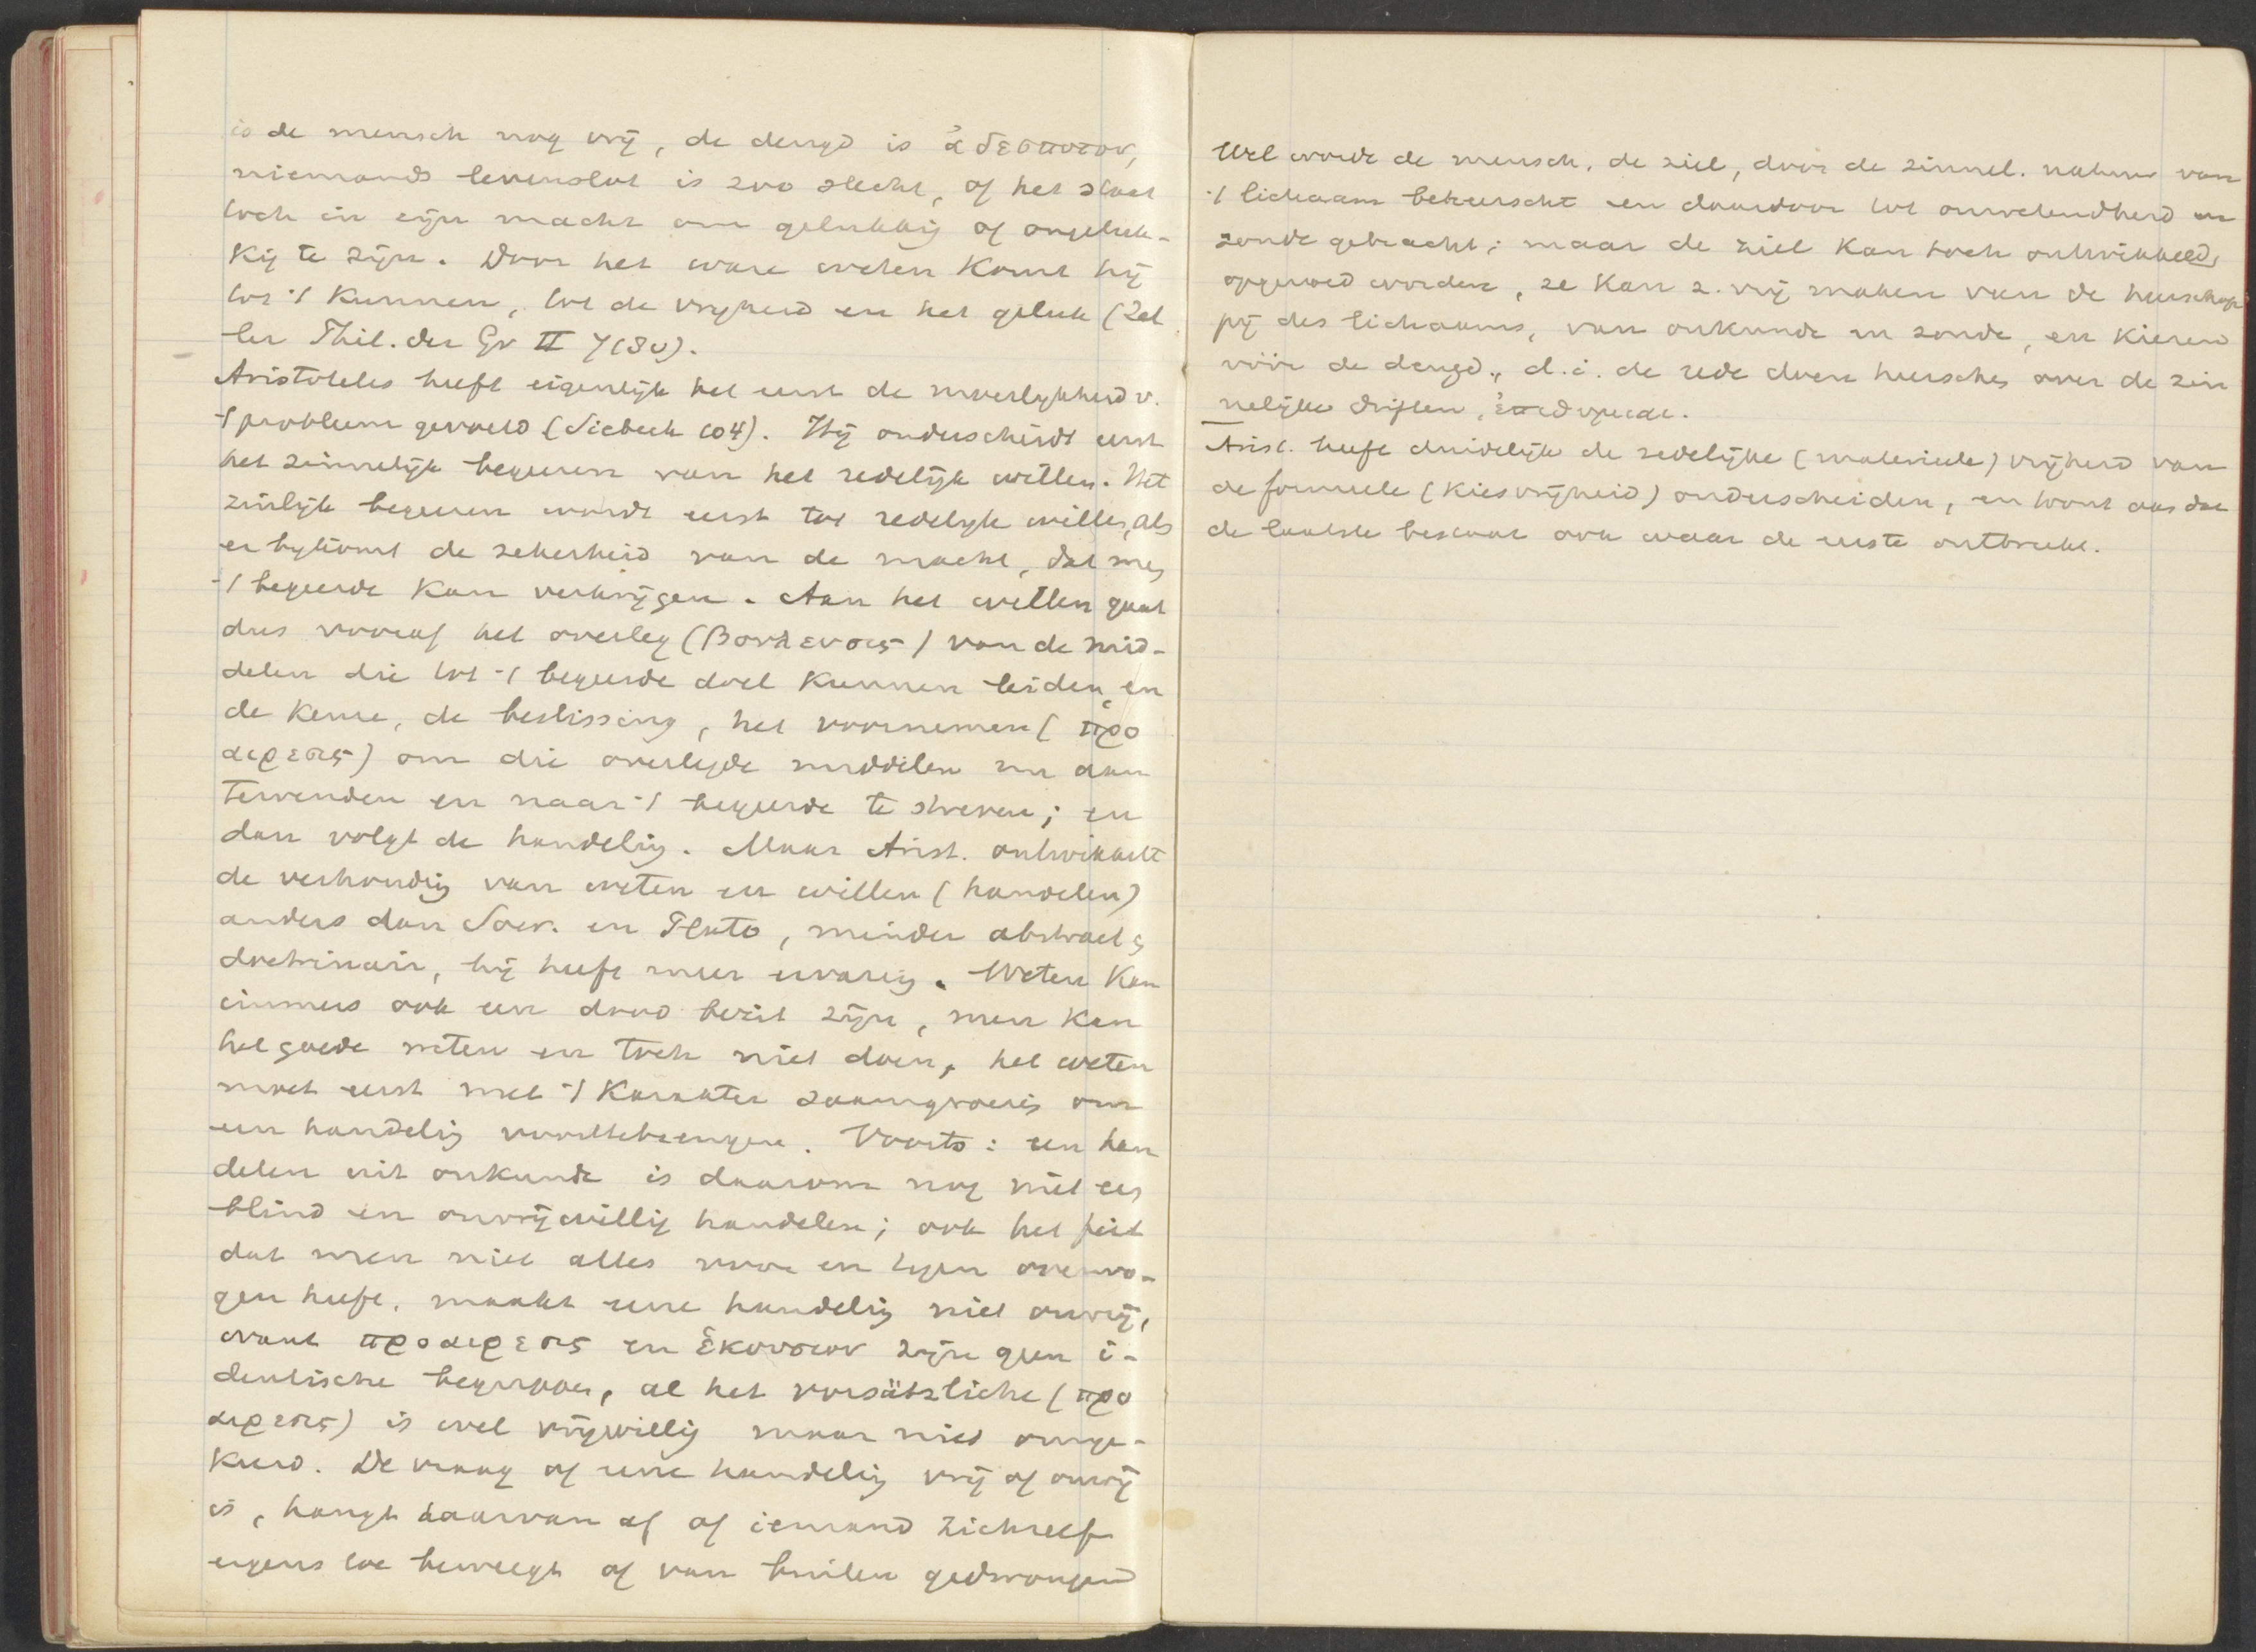 is de mensch nog vrij, de deugd is ἀδεσποτον,
niemands levenslot is zoo slecht, of het staat
toch in zijn macht om gelukkig of ongeluk-
kig te zijn. Door het ware weten komt hij
tot 't kunnen, tot de vrijheid en het geluk (Zel
ler Phil. der Gr II
Aristoteles heeft eigenlijk het eerst de moeilijkheid v.
't probleem gevoeld (Siebeck 104). Hij onderscheidt eerst
het zinnelijk begeeren van het redelijk willen. Het
zinlijk begeeren wordt eerst tot redelijk willen, als
er bijkomt de zekerheid van de macht, dat men
't begeerde kan verkrijgen. Aan het willen gaat
dus vooraf het overleg (βουλευσις) van de mid-
delen die tot 't begeerde doel kunnen leiden, en
de keuze, de beslissing, het voornemen (προ
αιρεσις) om die overlegde middelen nu aan
tewenden en naar 't begeerde te streven; en
dan volgt de handeling. Maar Arist. ontwikkelt
de verhouding van weten en willen (handelen)
anders dan Socr. en Plato, minder abstract &
doctrinair, hij heeft meer ervaring. Weten kan
immers ook een dood bezit zijn, men kan
het goede weten en toch niet doen, het weten
moet eerst met 't karakter saamgroeien om
een handeling voorttebrengen. Voorts: een han
delen uit onkunde is daarom nog niet een
blind en onvrijwillig handelen; ook het feit
dat men niet alles voor en tegen overwo-
gen heeft, maakt eene handeling niet onvrij,
want προαιρεσις en ἑκουσιον zijn geen i-
dentische begrippen, al het vorsätzliche (προ
αιρεσις) is wel vrijwillig maar niet omge-
keerd. De vraag of eene handeling vrij of onvrij
is, hangt daarvan af of iemand zichzelf
ergens toe beweegt of van buiten gedwongen
Wel wordt de mensch, de ziel, door de zinnel. natuur van
't lichaam beheerscht en daardoor tot onwetendheid en
zonde gebracht; maar de ziel kan toch ontwikkeld,
opgevoed worden, ze kan z. vrij maken van de heerschap
pij des lichaams, van onkunde en zonde, en kiezen
vóór de deugd, d.i. de rede doen heerschen over de zin
nelijke driften, ἐπιθυμιαι.
Arist. heeft duidelijk de zedelijke (materieele) vrijheid van
de formeele (kiesvrijheid) onderscheiden, en toont aan dat
de laatste bestaat ook waar de eerste ontbreekt.